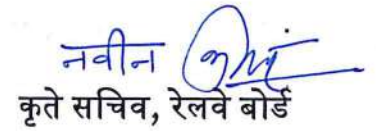 नवीन
कृते सचिव, रेलवे बोर्ड